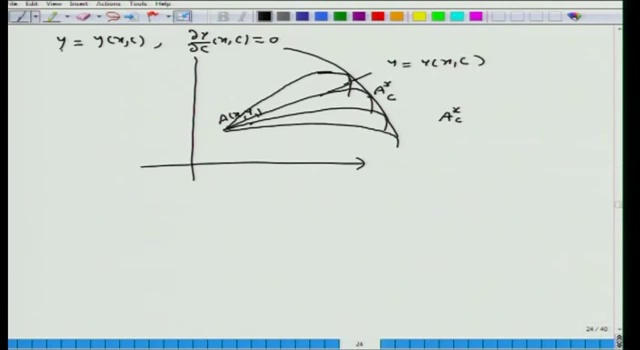 Edit View Insert Actions Tools Help
y = y(x,c) , ∂y/∂c (x,c) = 0
y = y(x,c)
A*c
A*c
24 / 40
24